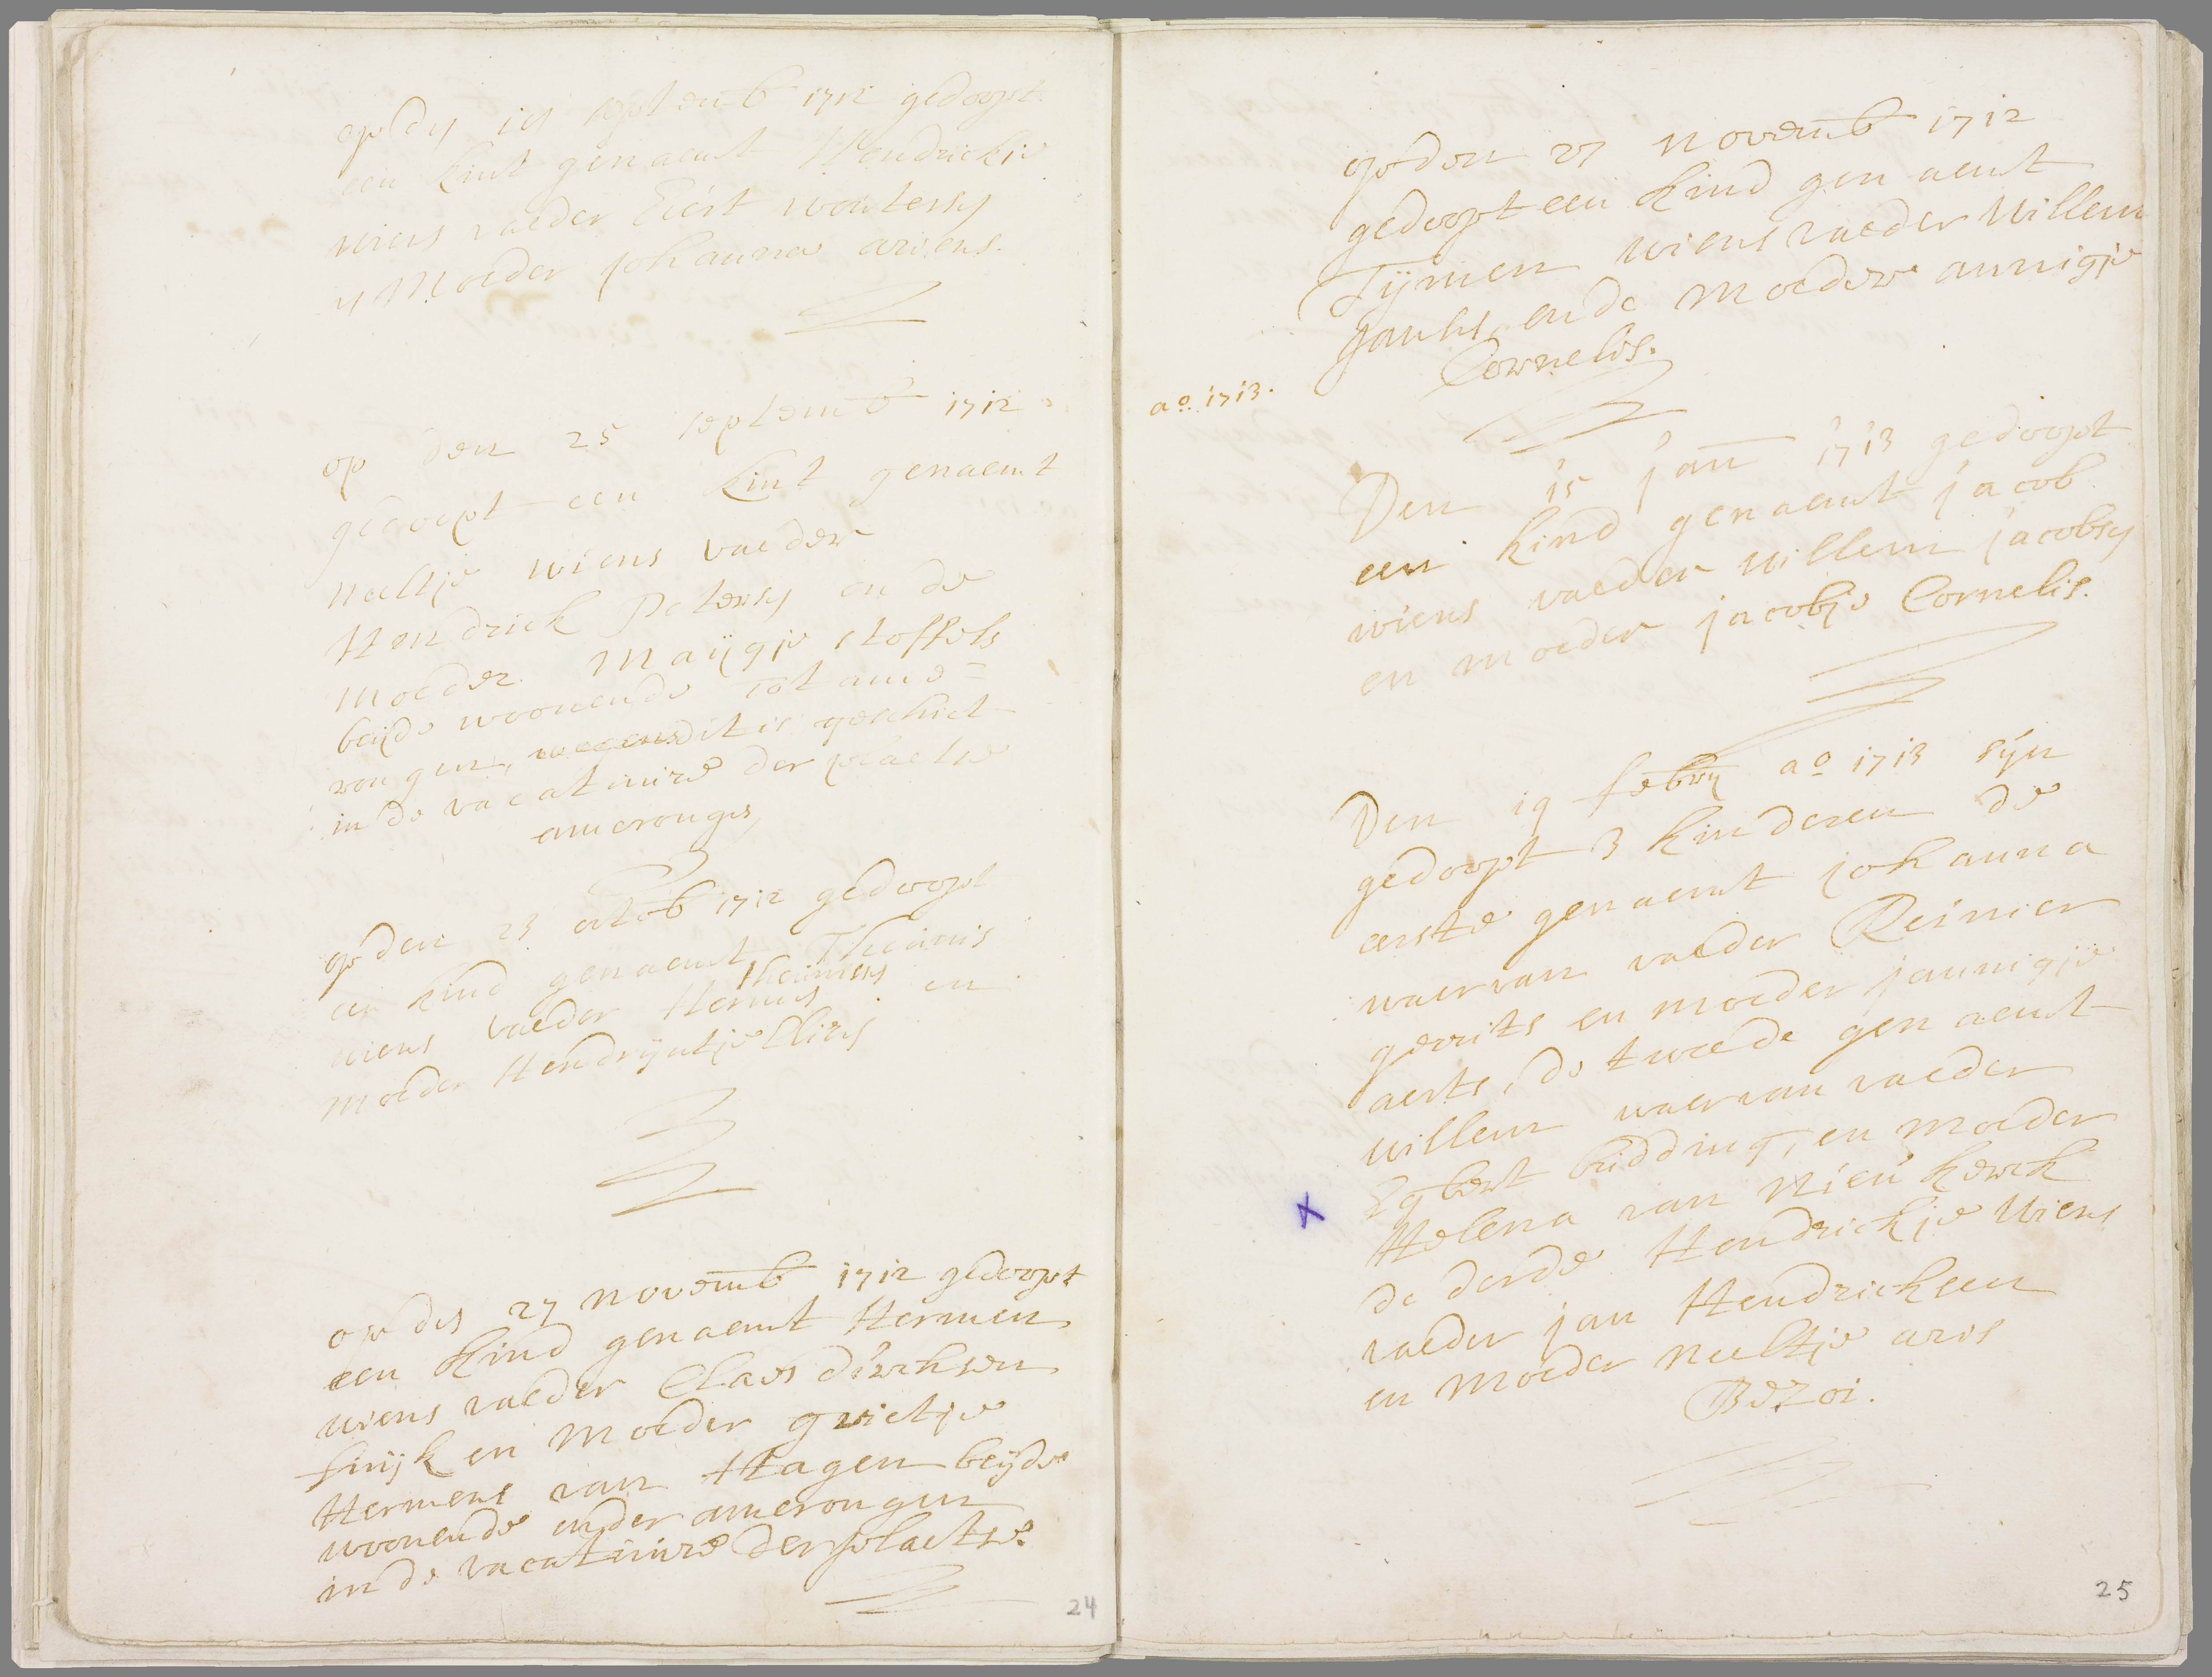 op dy septemb 1712 gedoopt
een kint genaemt Hendrickje
wiens vaeder Evert woutersy
y Moeder johanna ariens.
op den 25 septemb 1712
gedoopt een kint genaemt
Neeltje wiens vaeder
Hendrick Petersy en de
Moeder Maijgje stoffels
beijde woonende tot ame=
rongen, dit is geschiet
in de vacatuire der plaetse
amerongen,
op den 23 octob 1712 gedoopt
een kind genaemt Theünis
Theünisy
wiens vaeder Hermen en
moeder Hendrijntje
op dey 27 novemb 1712 gedoopt
een kind genaemt Hermen
wiens vaeder Claes dirchsen
en Moeder grietje
Hermens van Hagen beijde
woonende onder amerongen
in de vacatuire der plaetse.
24
op den 27 novemb 1712
gedoopt een kind genaemt
Tijmen wiens vaeder Willem
jansy, ende Moeder annigje
Cornelis.
ao. 1713.
Den 15 jan 1713 gedoopt
een kind genaemt jacob
wiens vaeder willem jacobsy
en moeder jacobje Cornelis.
Den 19 febrij ao 1713 sijn
gedoopt 3 kinderen de
eerste genaemt johanna
waervan vaeder Reinier
gerrits en moeder jannigje
aerts, de tweede genaemt
willem waervan vaeder
Egbert büdding, en moeder
Helena van Nieükerck
de derde Hendrickje wiens
vaeder jan Hendricksen
en Moeder Neeltje aris
Bezoi.
25